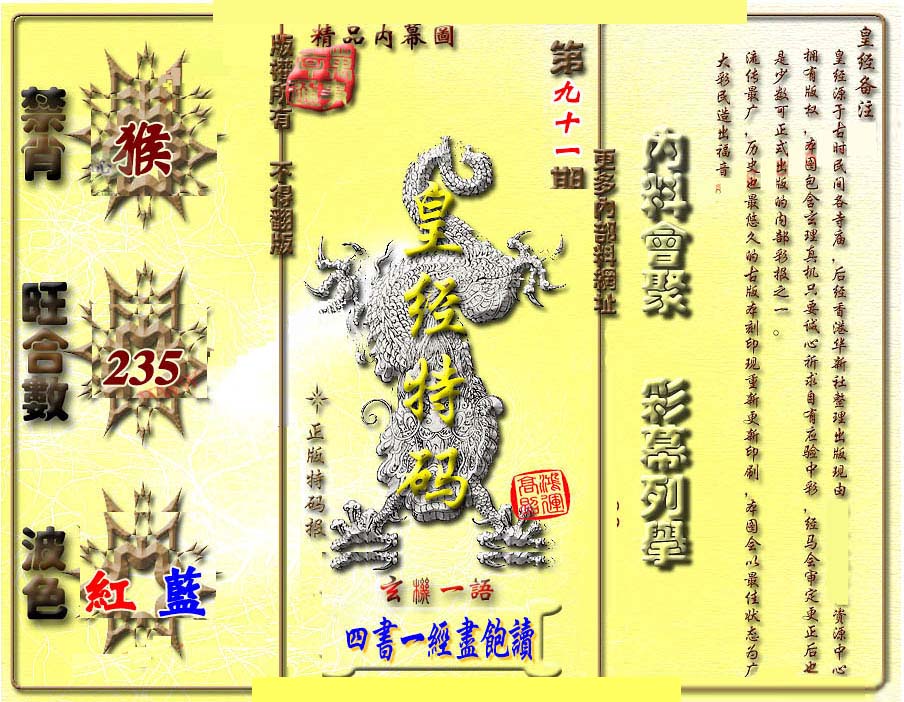 精品内幕圖
版權所有 不得翻版
第九十一期
更多內部料網址
禁肖
猴
旺合數
235
波色
紅 藍
皇经特码
正版特码报
鴻運高照
玄機一語
四書一經盡飽讀
內料會聚
彩幕列舉
皇经备注
皇经源于古时民间各寺庙，后经香港华新社整理出版现由 资源中心
拥有版权，本图包含玄理真机只要诚心祈求自有应验中彩，经马会审定更正后也
是少数可正式出版的内部彩报之一。
流传最广，历史也最悠久的古版本刻印现重新更新印刷，本图会以最佳状态为广
大彩民造出福音